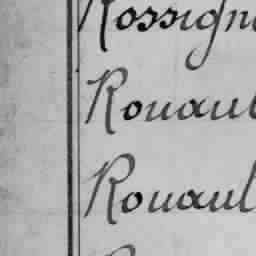 Rossign
Rouaul
Rouaul